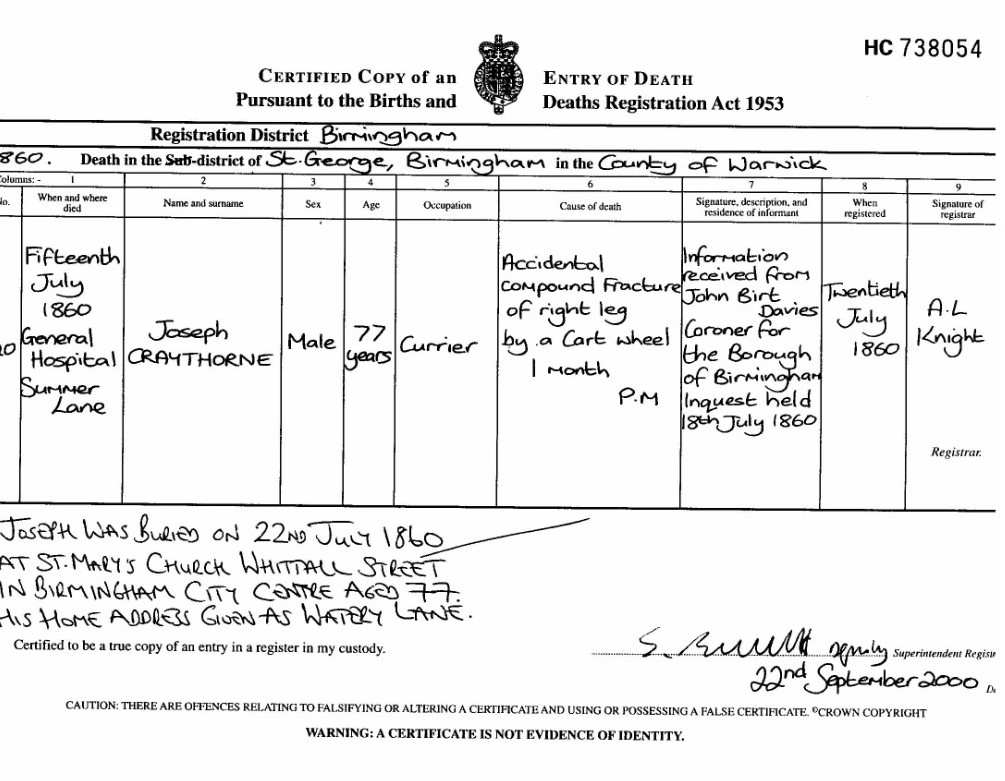 HC 738054
CERTIFIED COPY of an ENTRY OF DEATH
Pursuant to the Births and Deaths Registration Act 1953
Registration District Birmingham
1860. Death in the Sub-district of St. George, Birmingham in the County of Warwick
Columns: - 1 2 3 4 5 6 7 8 9
No.
When and where
died
Name and surname
Sex
Age
Occupation
Cause of death
Signature, description, and
residence of informant
When
registered
Signature of
registrar
Fifteenth
July
1860
General
Hospital
Summer
Lane
Joseph
CRAYTHORNE
Male
77
years
Currier
Accidental
compound Fracture
of right leg
by a Cart wheel
1 month
P.M
Information
received from
John Birt
Davies
Coroner for
the Borough
of Birmingham
Inquest held
18th July 1860
Twentieth
July
1860
A.L
Knight
Registrar.
JOSEPH WAS BURIED ON 22ND JULY 1860
AT ST. MARY'S CHURCH WHITTALL STREET
IN BIRMINGHAM CITY CENTRE AGED 77.
HIS HOME ADDRESS GIVEN AS WATERY LANE.
Certified to be a true copy of an entry in a register in my custody.
S. deputy Superintendent Registr
22nd September 2000
CAUTION: THERE ARE OFFENCES RELATING TO FALSIFYING OR ALTERING A CERTIFICATE AND USING OR POSSESSING A FALSE CERTIFICATE. ©CROWN COPYRIGHT
WARNING: A CERTIFICATE IS NOT EVIDENCE OF IDENTITY.